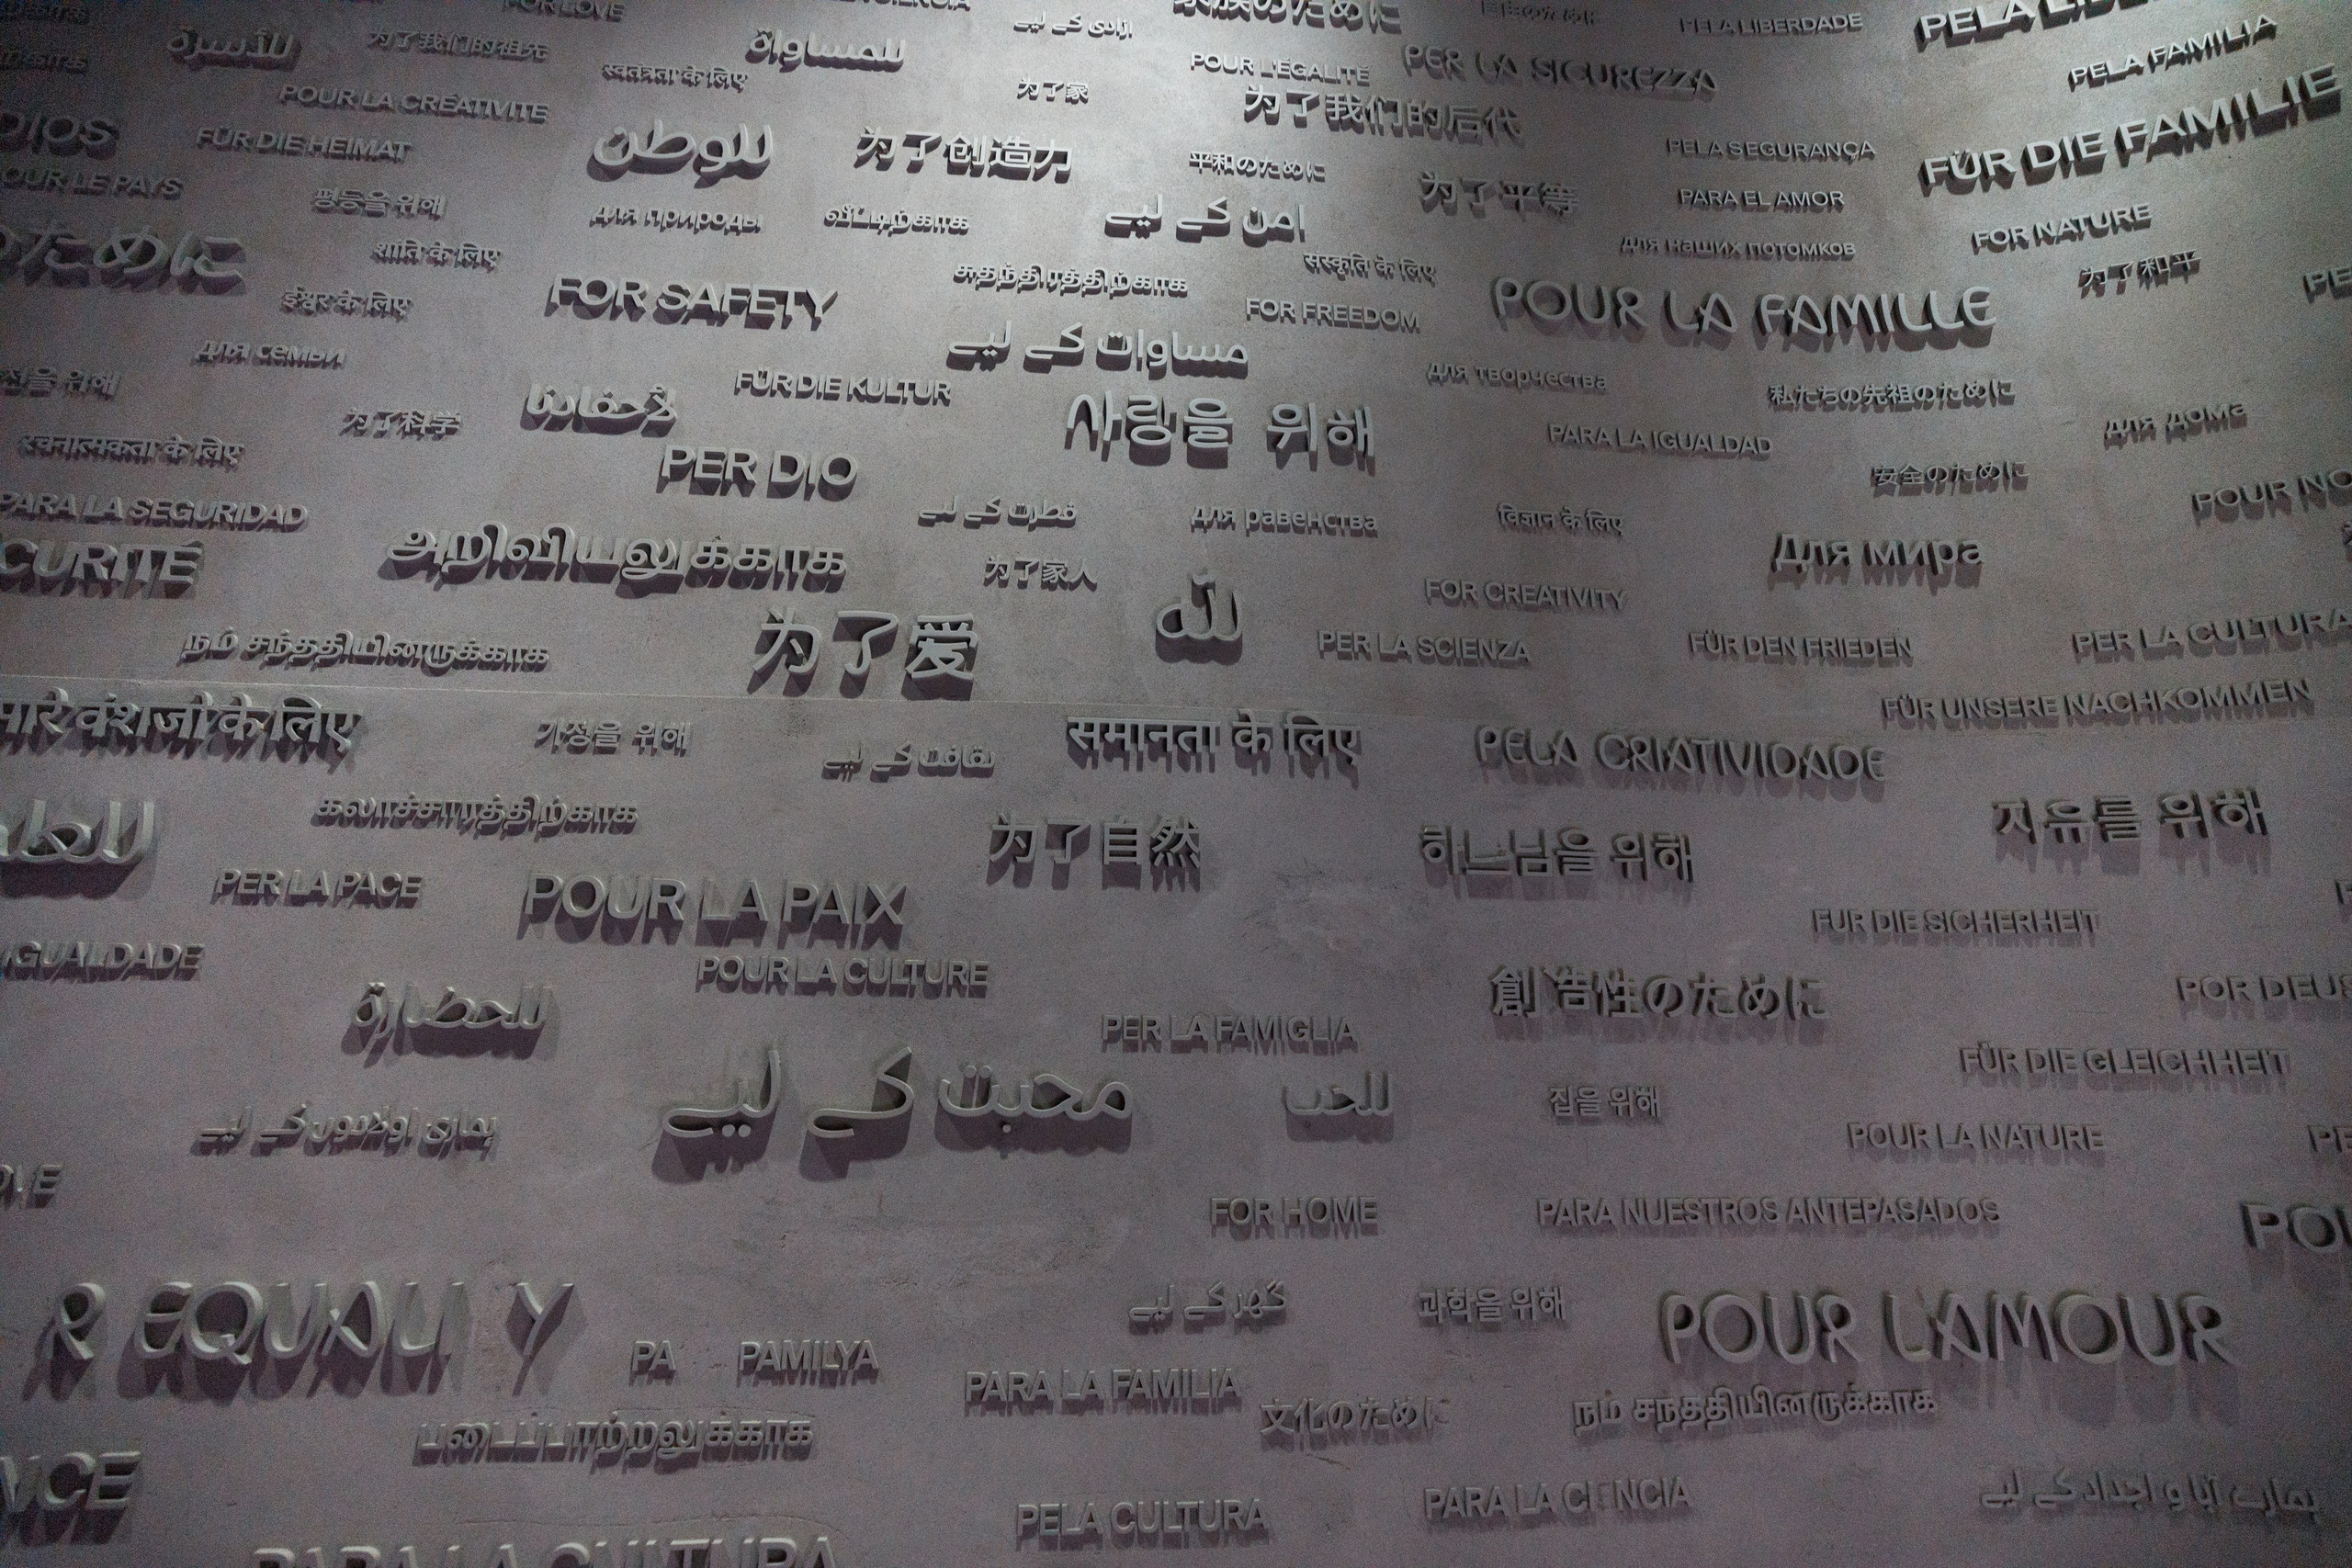 FOR LOVE
آزادی کے لیے
家族のために
PELA LIBERDADE
للأسرة
为了我们的祖先
للمساواة
स्वतंत्रता के लिए
POUR L'ÉGALITÉ
PER LA SICUREZZA
PELA FAMILIA
POUR LA CRÉATIVITÉ
为了家
为了我们的后代
DIOS
FÜR DIE HEIMAT
للوطن
为了创造力
平和のために
PELA SEGURANÇA
FÜR DIE FAMILIE
OUR LE PAYS
평등을 위해
для природы
வீட்டிற்காக
امن کے لیے
为了平等
PARA EL AMOR
FOR NATURE
のために
शांति के लिए
சுதந்திரத்திற்காக
संस्कृति के लिए
для наших потомков
为了和平
ईश्वर के लिए
FOR SAFETY
FOR FREEDOM
POUR LA FAMILLE
для семьи
مساوات کے لیے
을 위해
FÜR DIE KULTUR
для творчества
私たちの先祖のために
为了科学
لأحفادنا
사랑을 위해
для дома
रचनात्मकता के लिए
PER DIO
PARA LA IGUALDAD
安全のために
PARA LA SEGURIDAD
فطرت کے لیے
для равенства
विज्ञान के लिए
POUR NO
CURITÉ
அறிவியலுக்காக
为了家人
Для мира
لله
FOR CREATIVITY
நம் சந்ததியினருக்காக
为了爱
PER LA SCIENZA
FÜR DEN FRIEDEN
PER LA CULTURA
मारे वंशजों के लिए
가정을 위해
ثقافت کے لیے
समानता के लिए
PELA CRIATIVIDADE
FÜR UNSERE NACHKOMMEN
கலாச்சாரத்திற்காக
为了自然
하느님을 위해
자유를 위해
PER LA PACE
POUR LA PAIX
FÜR DIE SICHERHEIT
IGUALDADE
POUR LA CULTURE
創造性のために
POR DEUS
للحضارة
PER LA FAMIGLIA
FÜR DIE GLEICHHEIT
ہماری اولادوں کے لیے
محبت کے لیے
للحب
집을 위해
POUR LA NATURE
OVE
FOR HOME
PARA NUESTROS ANTEPASADOS
POU
R EQUALI Y
گھر کے لیے
과학을 위해
POUR L'AMOUR
PA PAMILYA
PARA LA FAMILIA
文化のために
நம் சந்ததியினருக்காக
படைப்பாற்றலுக்காக
NCE
PELA CULTURA
PARA LA CIENCIA
ہمارے آبا و اجداد کے لیے
PARA LA CULTURA